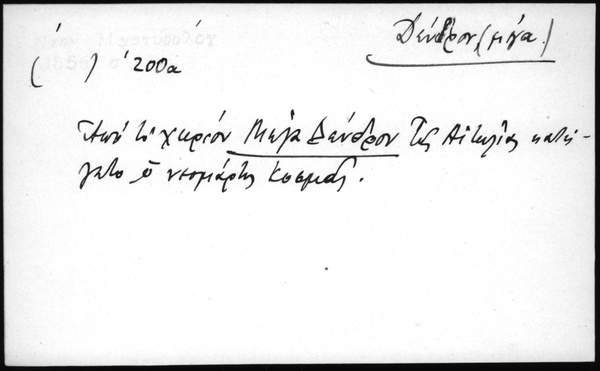 Δένδρον (μέγα.)
( ) 200α
Ἀπό τό χωρίον Μέγα Δένδρον τῆς Αἰτωλίας κατή-
γετο ὁ νεομάρτυς Κοσμᾶς.